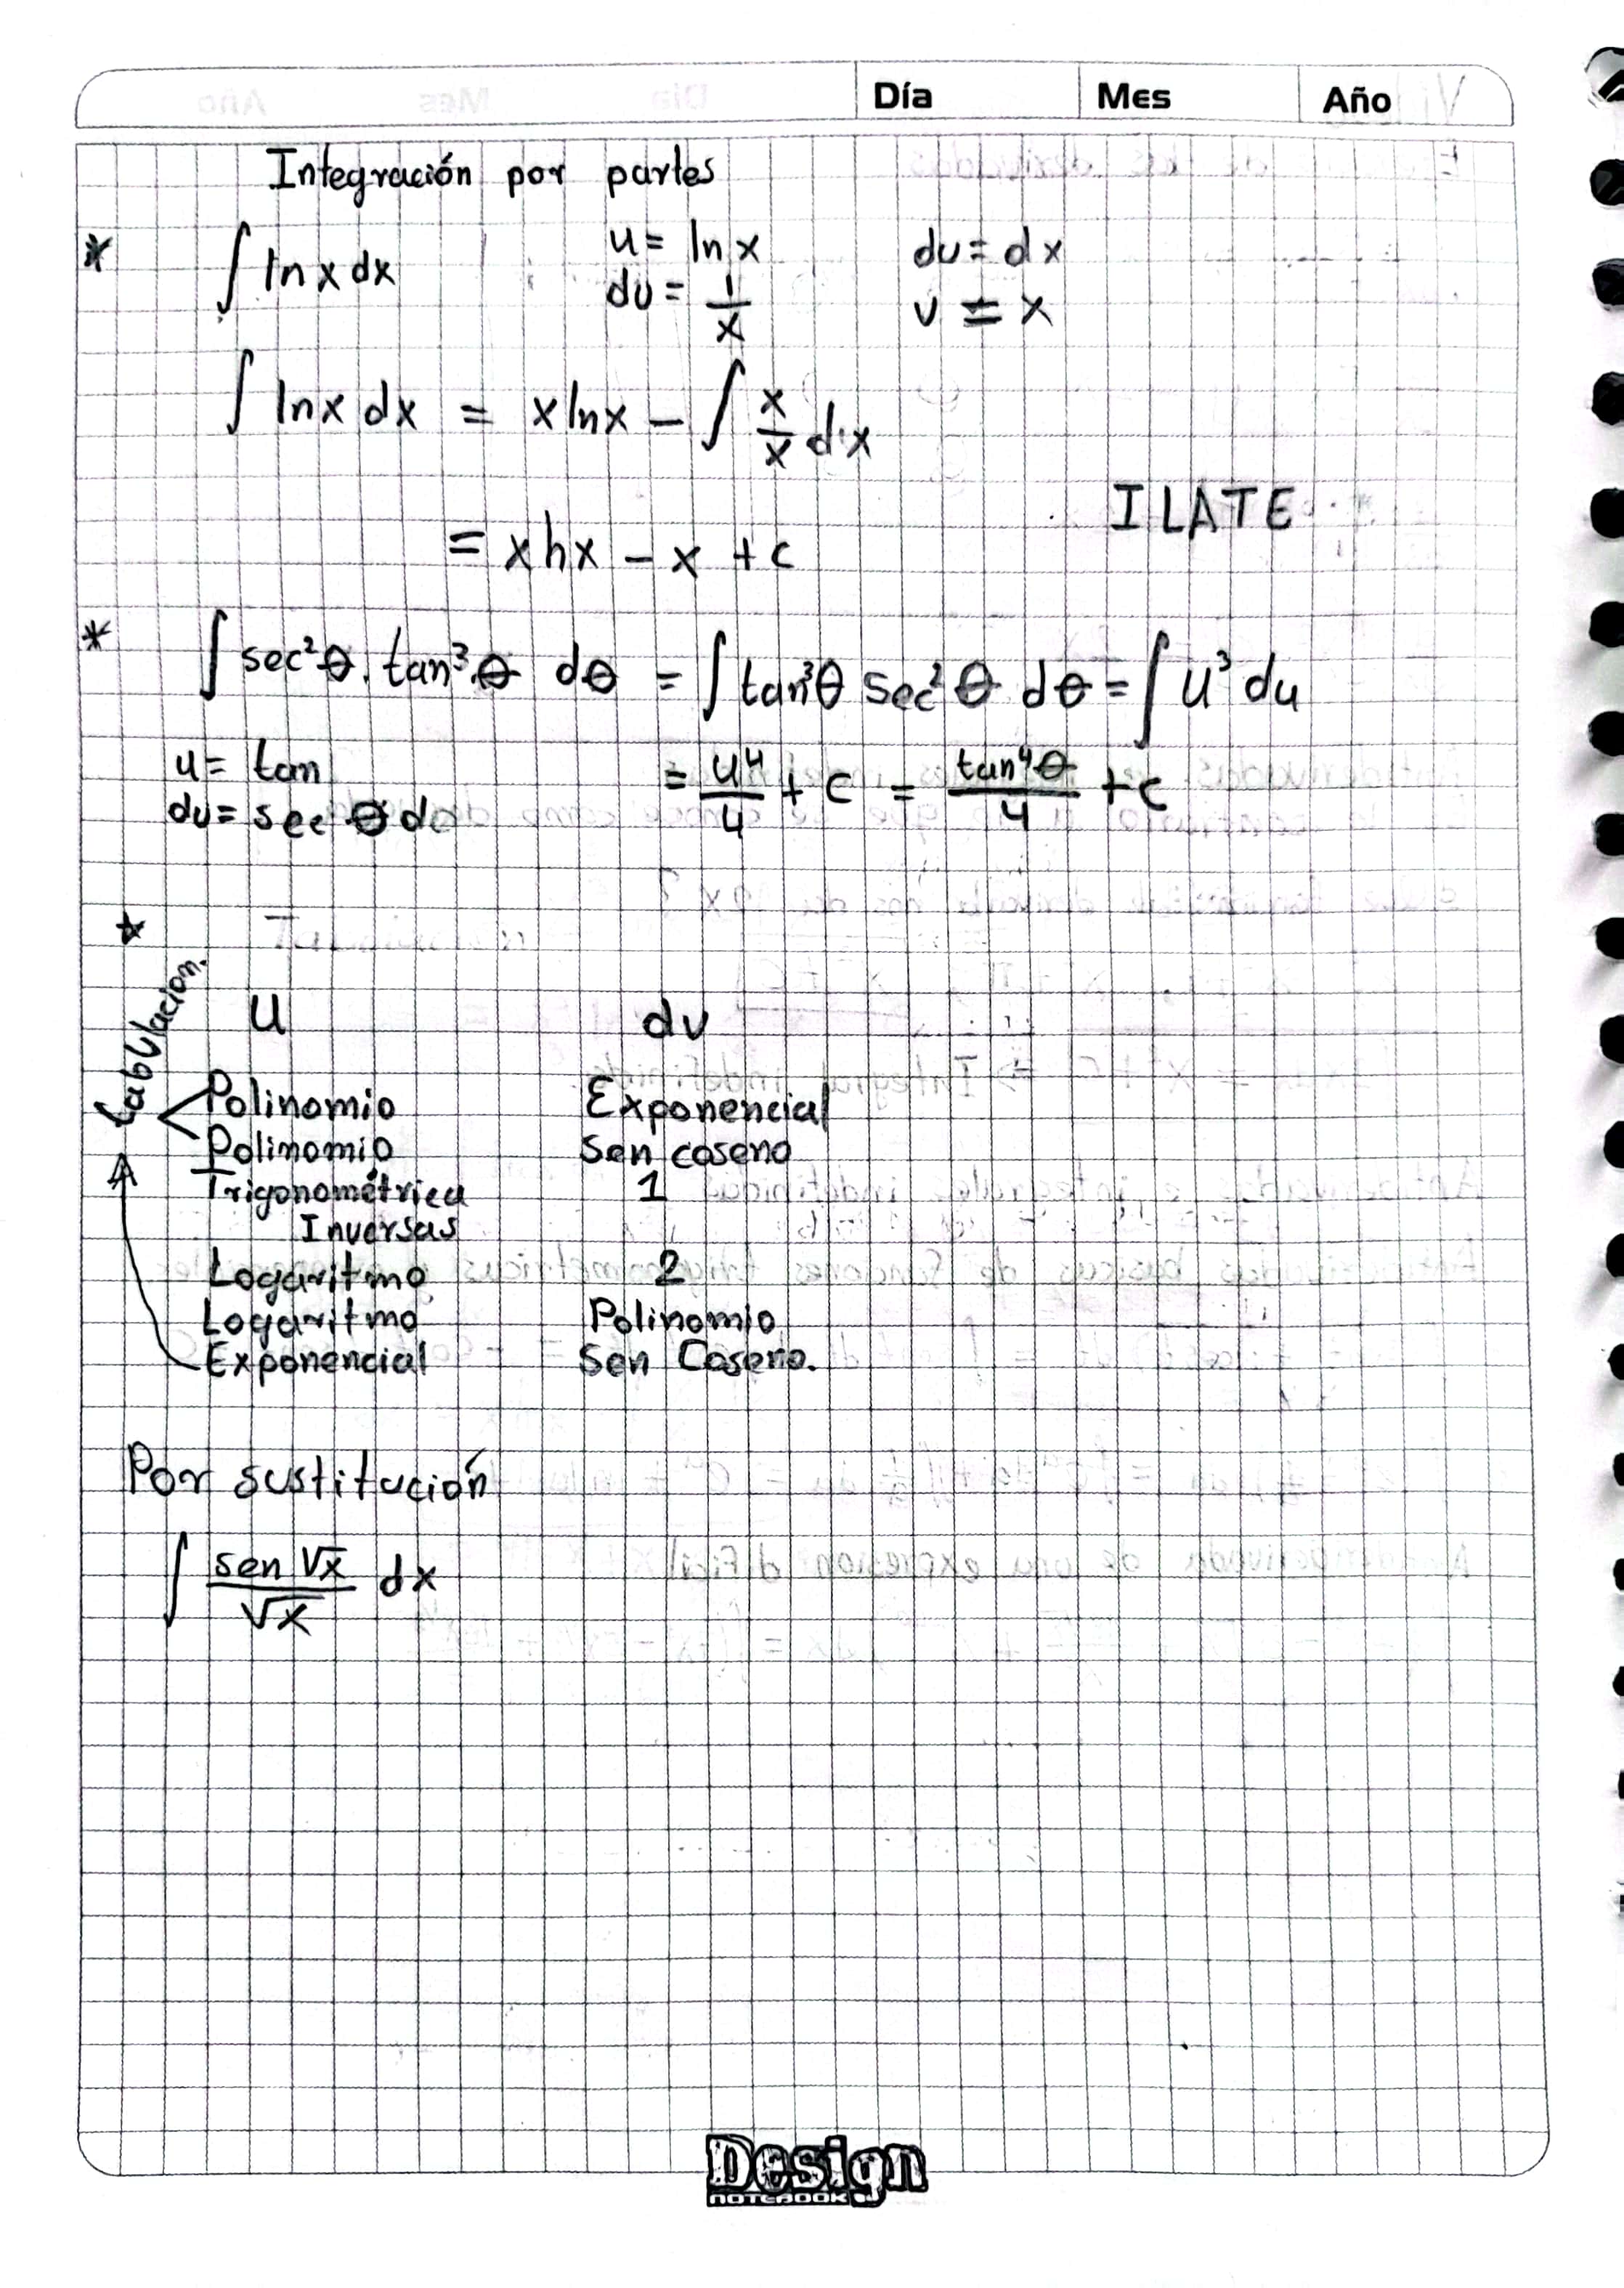 Día Mes Año
Integración por partes
* ∫ ln x dx u = ln x dv = dx
du = 1/x v = x
∫ ln x dx = x ln x - ∫ x/x dx
ILATE
= x ln x - x + c
* ∫ sec²θ . tan³θ dθ = ∫ tan³θ sec²θ dθ = ∫ u³ du
u = tan = u⁴/4 + c = tan⁴θ/4 + c
du = sec θ dθ
*
tabulación.
u dv
Polinomio Exponencial
Polinomio Sen coseno
Trigonométrica 1
Inversas
Logaritmo 2
Logaritmo Polinomio
Exponencial Sen Coseno.
Por sustitución
∫ sen √x / √x dx
Design
NOTEBOOK